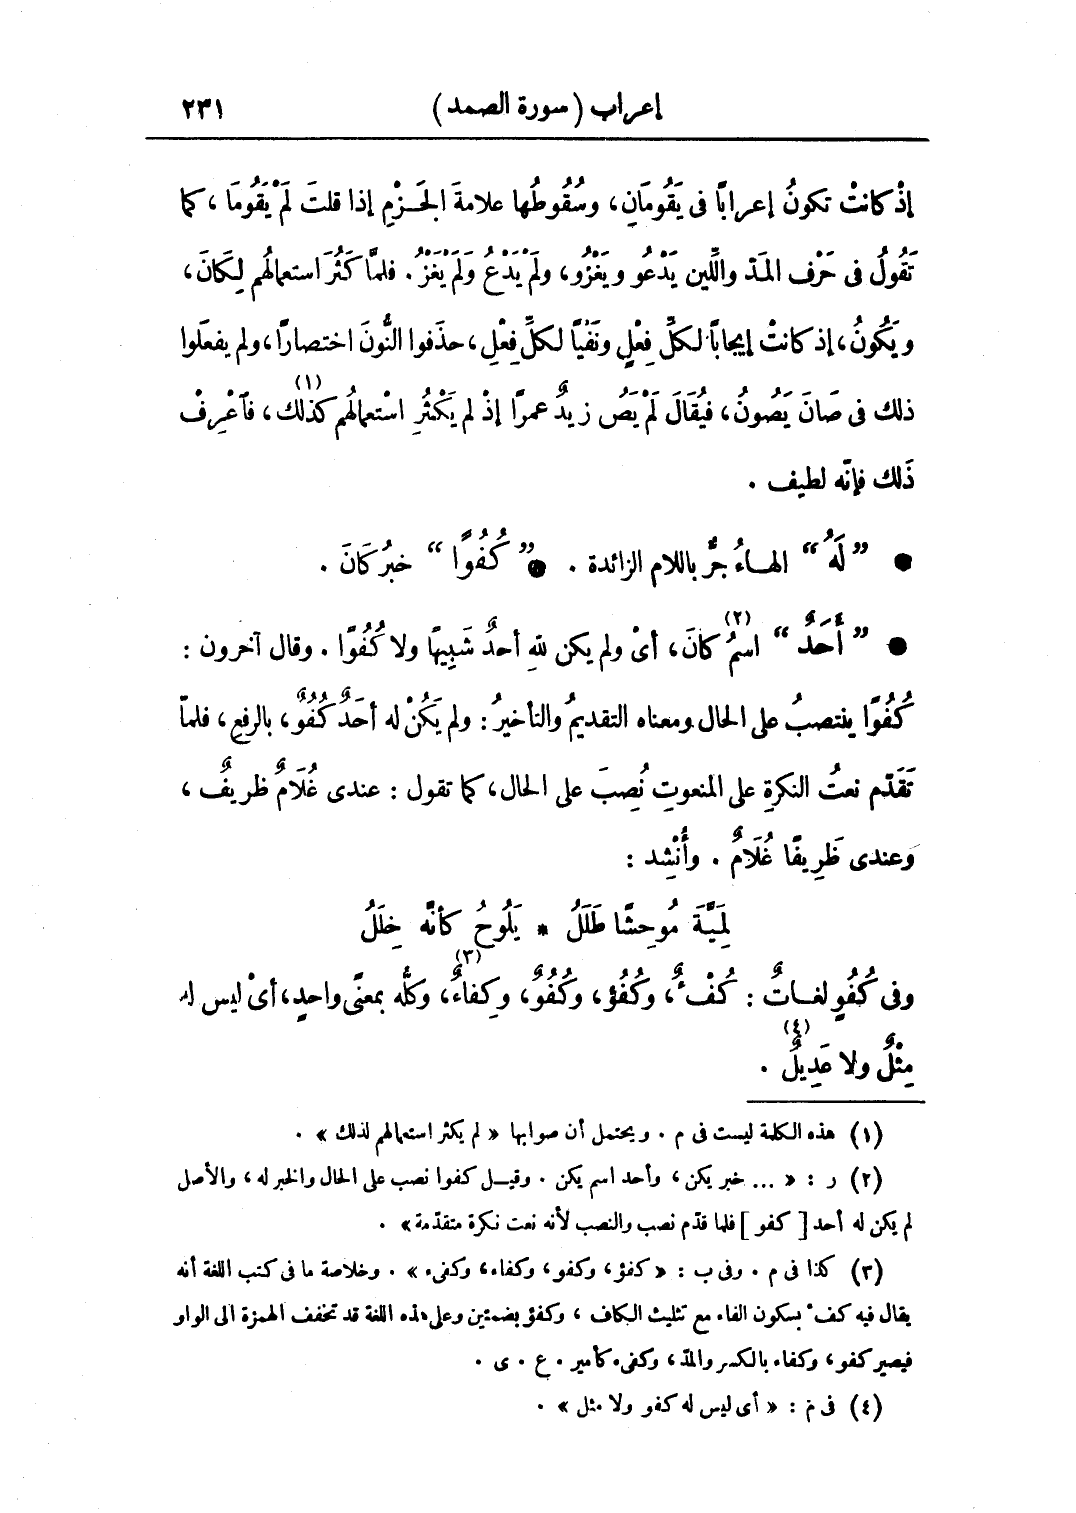 إعراب (سورة الصمد) ٢٣١
إذْ كانتْ تكونُ إعرابًا فى يَقُومَانِ، وسُقُوطُها علامةَ الجَـزْمِ إذا قلتَ لَمْ يَقُومَا، كما
تَقُولُ فى حَرْف المَدّ واللِّين يَدْعُو ويَغْزُو، ولَمْ يَدْعُ وَلَمْ يَغْزُ. فلمَّا كَثُرَ استعمالُهم لِكَانَ،
ويَكُونُ، إذ كانتْ إيجابًا لكلِّ فِعْلٍ ونَفْيًا لكلِّ فِعْلٍ، حذَفوا النُّونَ اختصارًا، ولم يفعلوا
ذلك فى صَانَ يَصُونُ، فيُقَالَ لَمْ يَصُ زيدٌ عمرًا إذْ لم يَكْثُرِ اسْتعمالُهم كذلك(١)، فآعْرِفْ
ذَلك فإنّه لطيف .
● ”لَهُ“ الهـاءُ جرٌّ باللام الزائدة . ● ”كُفُوًا“ خبرُ كَانَ .
● ”أَحَدٌ“ اسمُ كَانَ(٢)، أىْ ولم يكن للهِ أحدٌ شَبِيهًا ولا كُفُوًا . وقال آخرون :
كُفُوًا ينتصبُ على الحال ومعناه التقديمُ والتأخيرُ : ولم يَكُنْ له أحَدٌ كُفُوٌ، بالرفعِ، فلمّا
تَقَدّم نعتُ النكرةِ على المنعوتِ نُصِبَ على الحال، كما تقول : عندى غُلَامٌ ظريفٌ ،
وعندى ظَرِيفًا غُلَامٌ . وأُنْشِد :
لِمَيَّةَ مُوحِشًا طَلَلُ * يَلُوحُ كأنّه خِلَلُ
وفى كُفُوٍ لغـاتٌ : كُفْءٌ، وكُفُؤ، وكُفُوٌ، وكِفاءٌ(٣)، وكلُّه بمعنًى واحدٍ، أىْ ليس له
مِثْلٌ ولا عَدِيلٌ(٤) .
(١) هذه الكلمة ليست فى م . ويحتمل أن صوابها « لم يكثر استعمالهم لذلك » .
(٢) ر : « ... خبر يكن، وأحد اسم يكن . وقيـل كفوا نصب على الحال والخبر له ، والأصل
لم يكن له أحد [ كفو ] فلما قدّم نصب والنصب لأنه نعت نكرة متقدّمة » .
(٣) كذا فى م . وفى ب : « كفؤ، وكفو، وكفاء، وكفىء » . وخلاصة ما فى كتب اللغة أنه
يقال فيه كفء بسكون الفاء مع تثليث الكاف ، وكفؤ بضمتين وعلى هذه اللغة قد تخفف الهمزة الى الواو
فيصير كفو، وكفاء بالكسر والمدّ، وكفىء كأمير . ع . ى .
(٤) فى م : « أى ليس له كفو ولا مثل » .